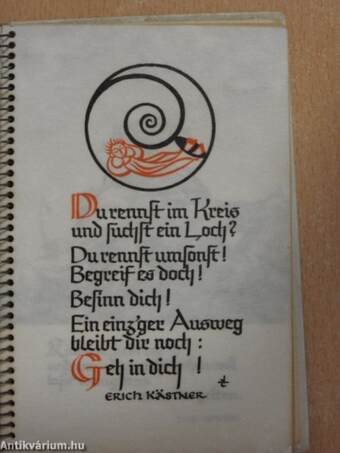 Du rennst im Kreis
und suchst ein Loch?
Du rennst umsonst!
Begreif es doch!
Besinn dich!
Ein einz'ger Ausweg
bleibt dir noch:
Geh in dich!
ERICH KÄSTNER
Antikvárium.hu